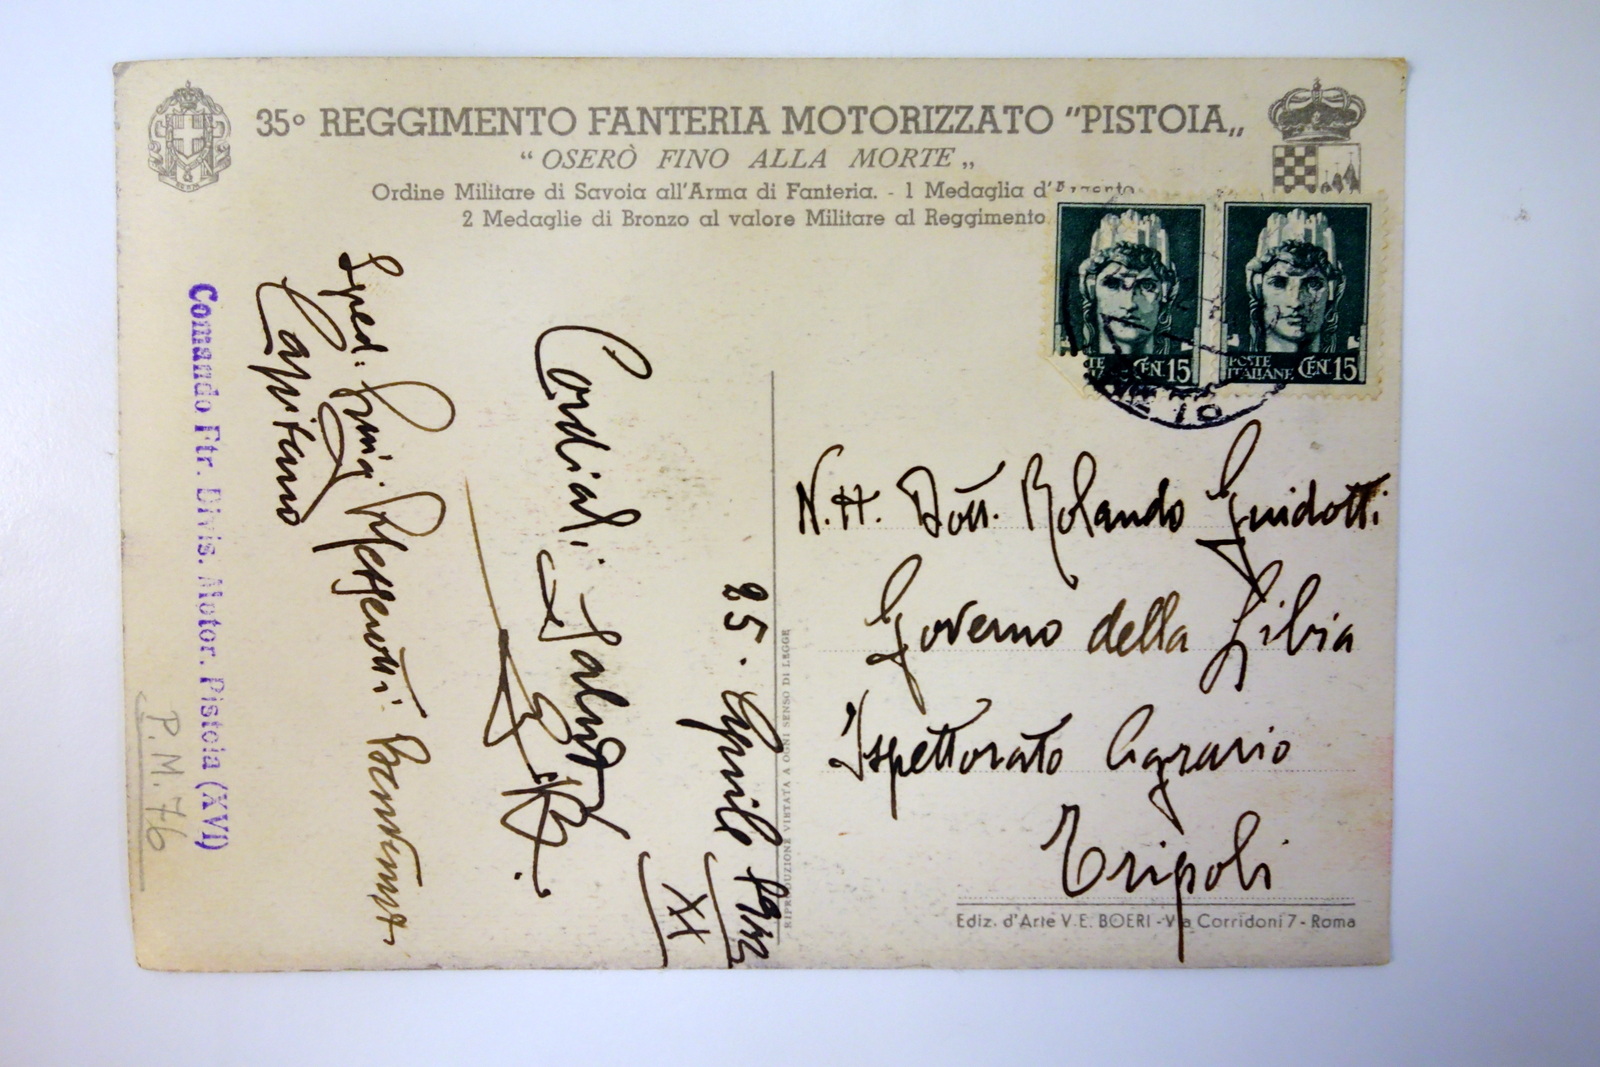 35° REGGIMENTO FANTERIA MOTORIZZATO "PISTOIA„
“ OSERÒ FINO ALLA MORTE „
Ordine Militare di Savoia all'Arma di Fanteria. - 1 Medaglia d'Argento
2 Medaglie di Bronzo al valore Militare al Reggimento
POSTE ITALIANE CEN. 15
POSTE ITALIANE CEN. 15
N. H. Dott. Rolando Guidotti
Governo della Libia
Ispettorato Agrario
Tripoli
Ediz. d'Arte V. E. BOERI - Via Corridoni 7 - Roma
RIPRODUZIONE VIETATA A OGNI SENSO DI LEGGE
25. Aprile 1942
XX
Cordiali Saluti
Sped: Luigi
Capitano
Comando Ftr. Divis. Motor. Pistoia (XVI)
P. M. 76